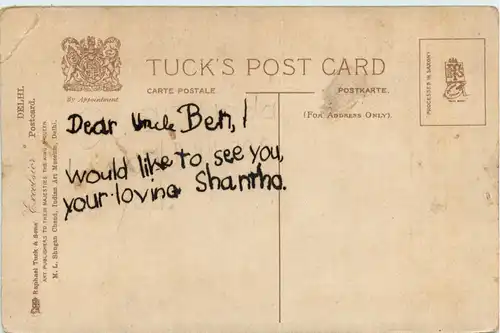 TUCK'S POST CARD
CARTE POSTALE
POSTKARTE.
(FOR ADDRESS ONLY).
By Appointment
PROCESSED IN SAXONY
Dear Uncle Ben, I
would like to see you,
your loving Shantha.
DELHI.
Postcard.
Raphael Tuck & Sons'
ART PUBLISHERS TO THEIR MAJESTIES THE KING & QUEEN
M. L. Shugan Chand, Indian Art Museum, Delhi.